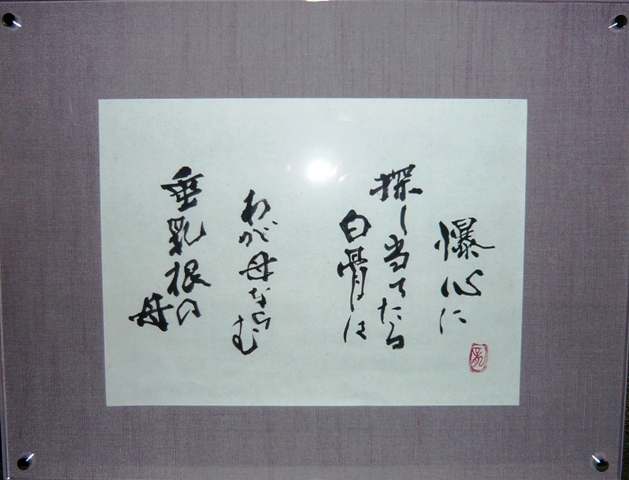 爆心に
探し当てたる
白骨は
わが母ならむ
垂乳根の
母